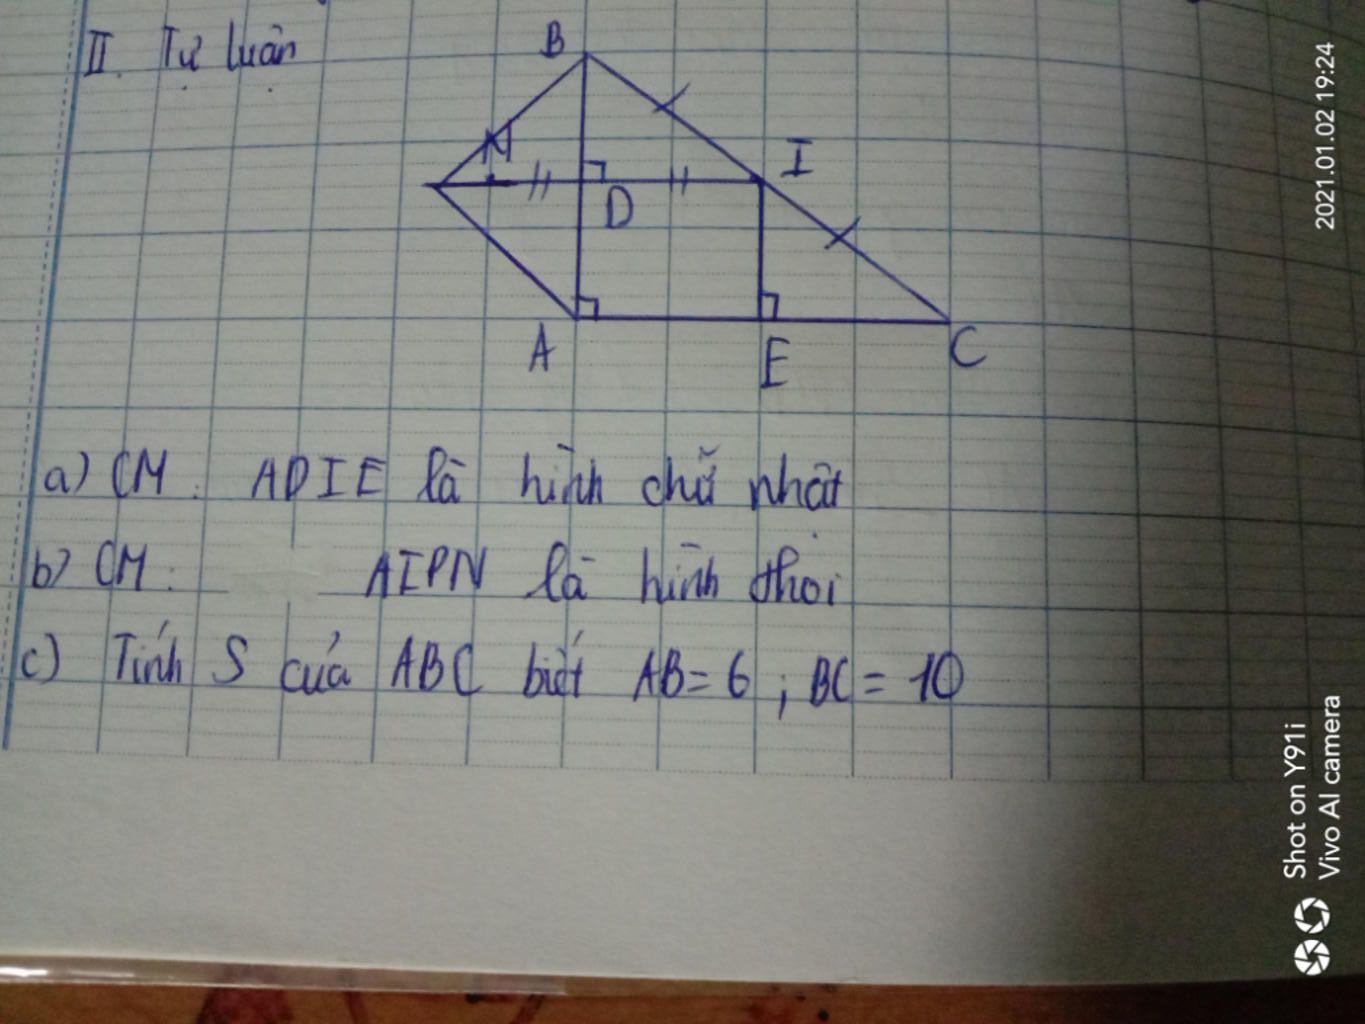 II. Tự luận
B
N
I
D
A
E
C
a) CM: ADIE là hình chữ nhật
b) CM: AIPN là hình thoi
c) Tính S của ABC biết AB = 6 ; BC = 10
2021.01.02 19:24
Shot on Y91i
Vivo AI camera